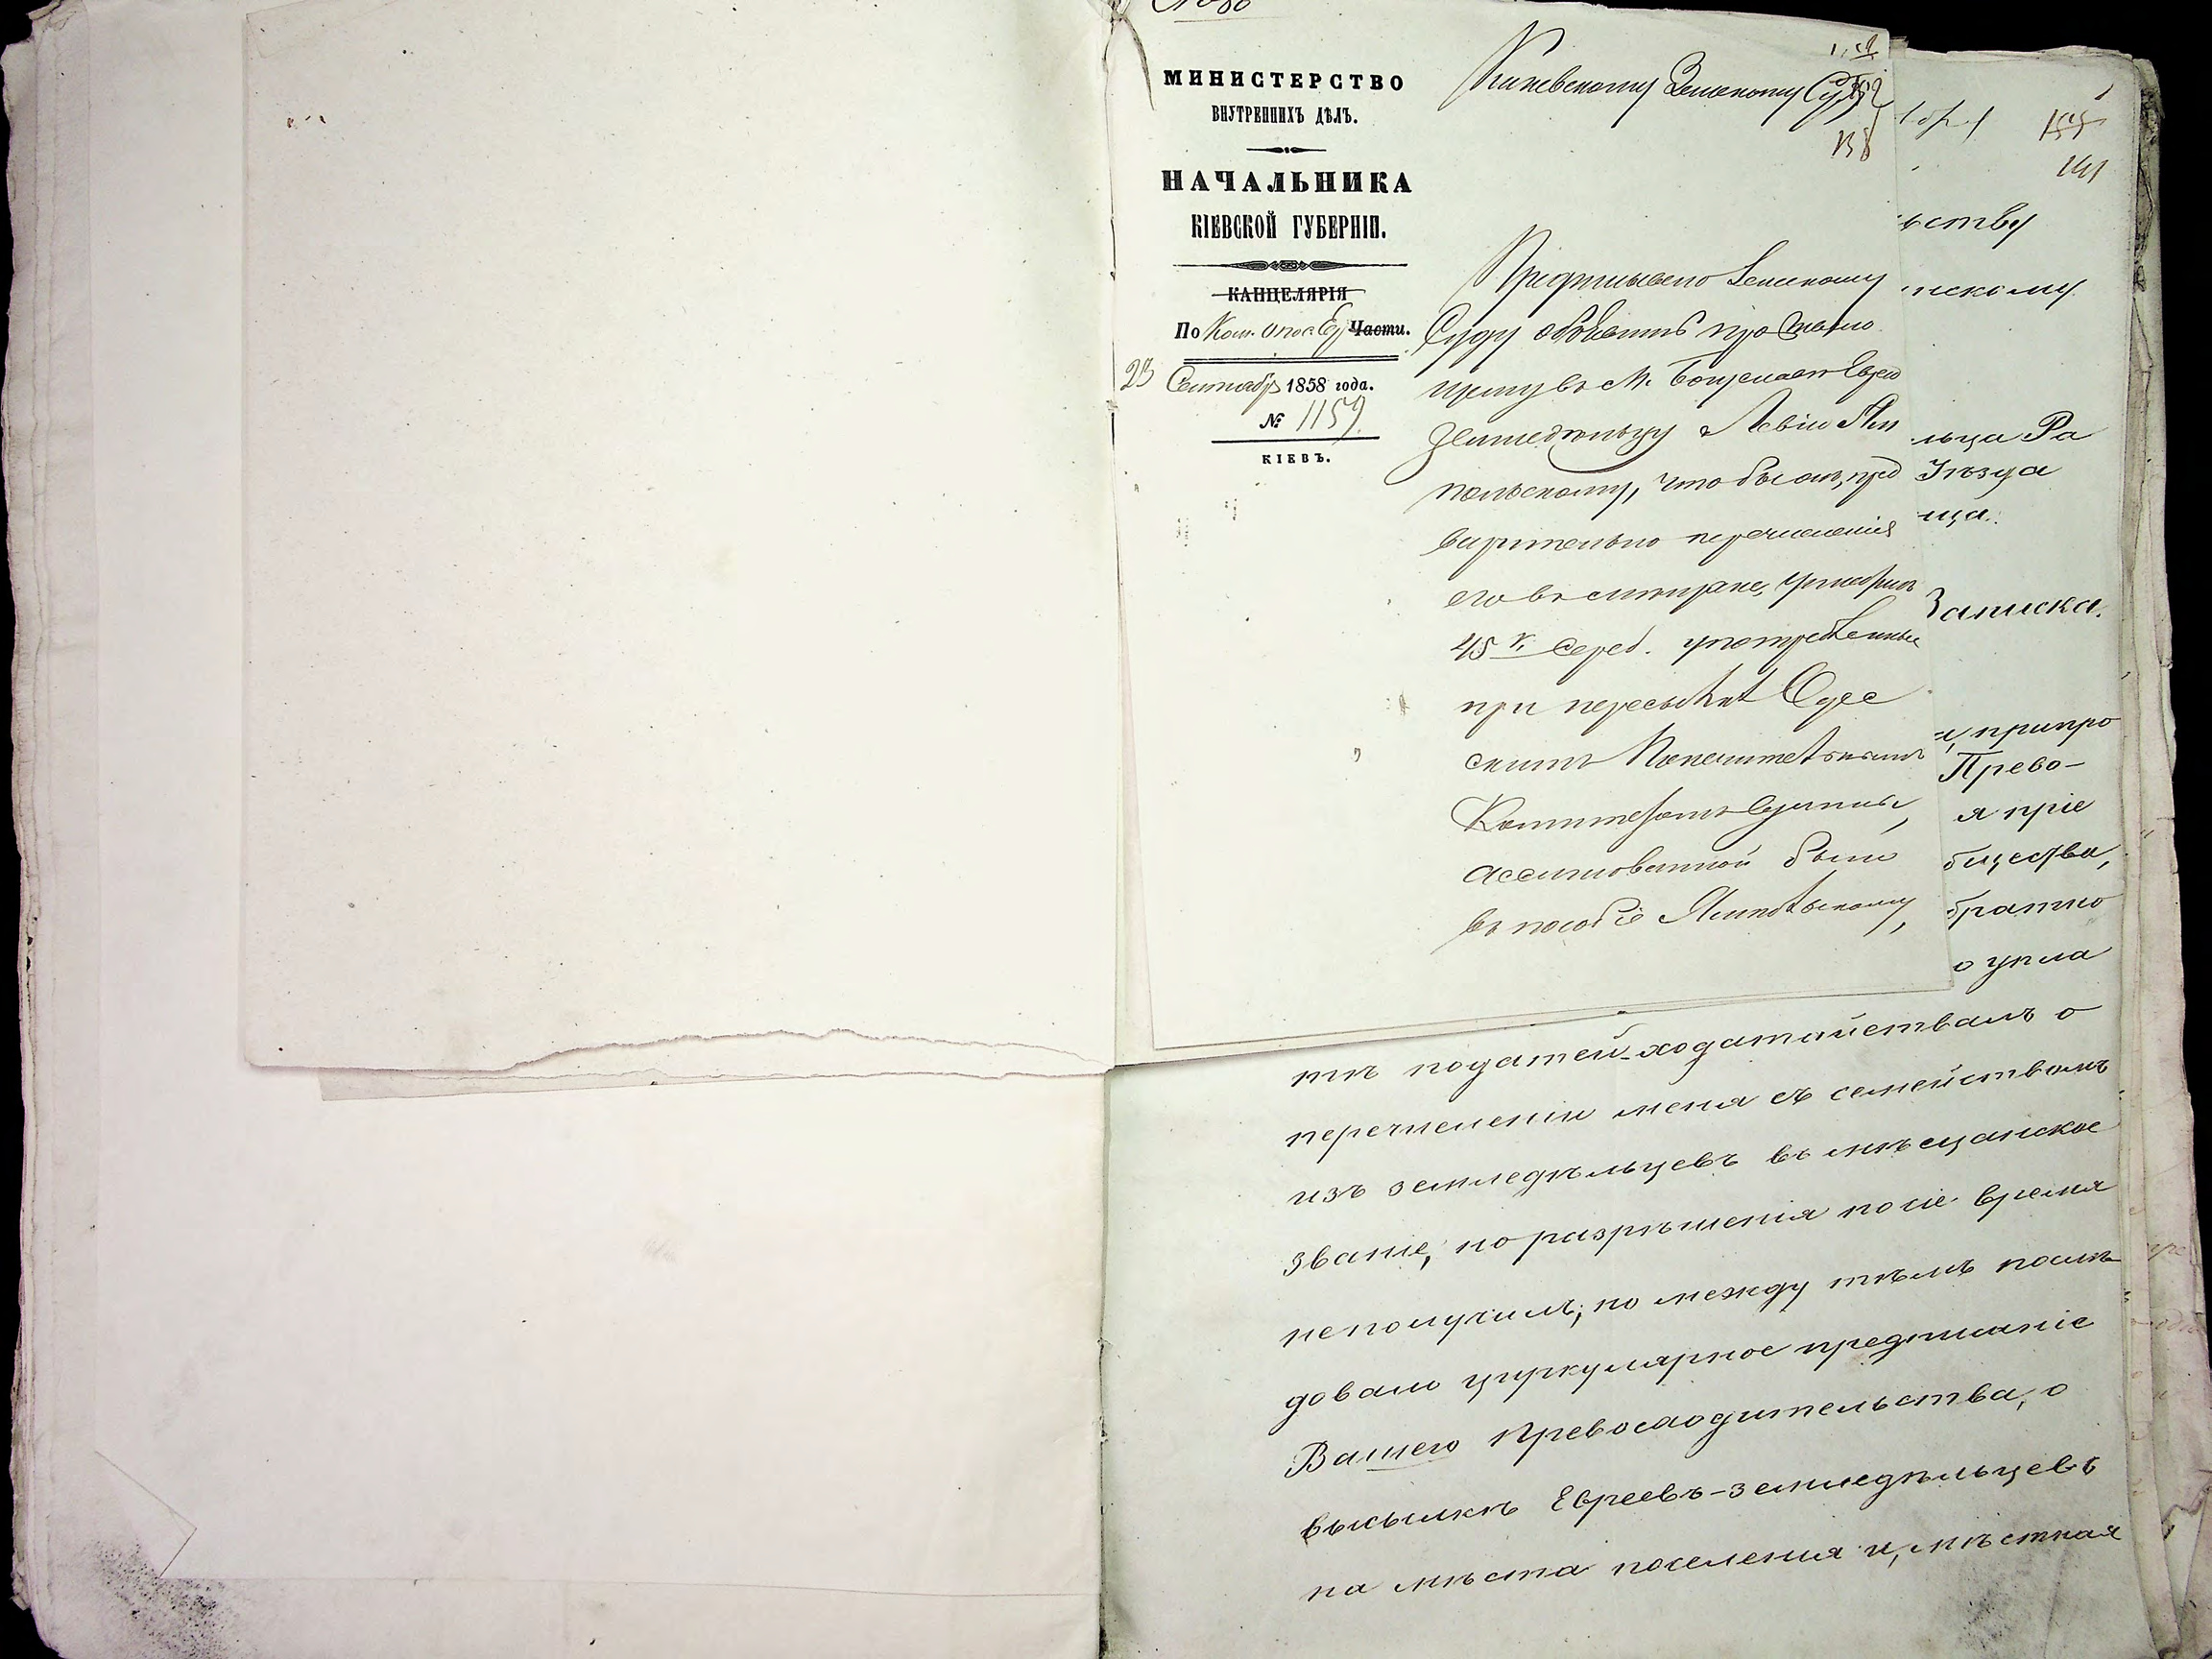 МИНИСТЕРСТВО
ВНУТРЕННИХЪ ДѢЛЪ.
НАЧАЛЬНИКА
КІЕВСКОЙ ГУБЕРНІИ.
КАНЦЕЛЯРІЯ
По Ком. Части.
23 Сентября 1858 года.
№ 1159.
КІЕВЪ.
Киевскому Земскому Суду
138
Предписываю Земскому
Суду объявить проживаю
щему въ М. Евр.
земледѣльцу Ям
польскому, что бы онъ, пред
варительно перечисленія
его въ мѣщане,
45 к. сереб. употребленные
при пересылкѣ Одес
скимъ Попечительнымъ
Комитетомъ
ассигнованной было
въ пособіе Ямпольскому,
141
ьству
нскому
льца Ра
Уѣзда
ща.
Записка.
припро
Прево-
я пріе
бщества,
братно
о упла
тѣ податей ходатайствалъ о
перечисленіи меня съ семействомъ
изъ земледѣльцевъ въ мѣщанское
званіе, но разрѣшенія по сіе время
неполучилъ, но между тѣмъ послѣ
довало циркулярное предписаніе
Вашего Превосходительства, о
высылкѣ Евреевъ-земледѣльцевъ
на мѣста поселенія и, мѣстная